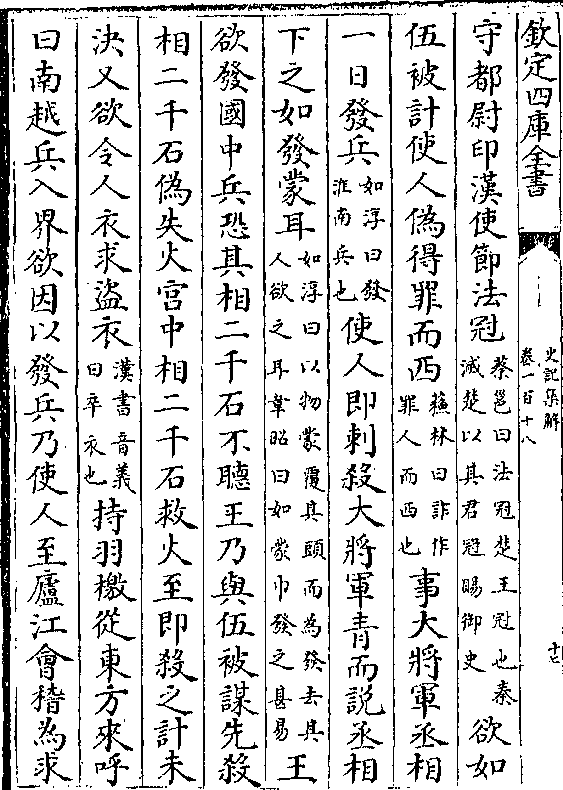 欽定四庫全書
史記集解
卷一百十八
十七
守都尉印漢使節法冠蔡邕曰法冠楚王冠也秦滅楚以其君冠賜御史欲如
伍被計使人偽得罪而西蘇林曰詐作罪人而西也事大將軍丞相
一日發兵如淳曰發淮南兵也使人即刺殺大將軍青而說丞相
下之如發蒙耳如淳曰以物蒙覆其頭而為發去其人欲之耳韋昭曰如蒙巾發之甚易王
欲發國中兵恐其相二千石不聽王乃與伍被謀先殺
相二千石偽失火宮中相二千石救火至即殺之計未
決又欲令人衣求盜衣漢書音義曰卒衣也持羽檄從東方來呼
曰南越兵入界欲因以發兵乃使人至廬江會稽為求